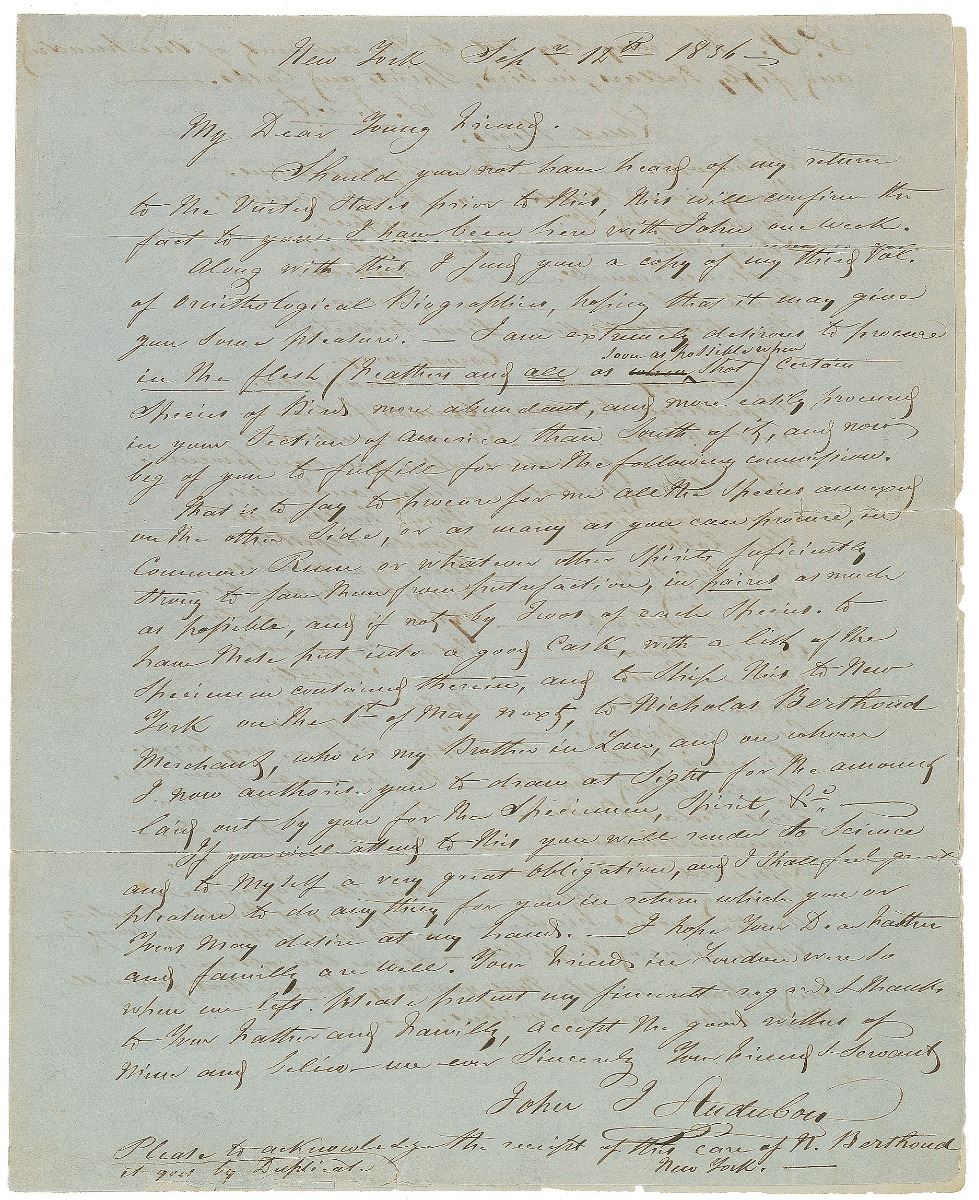 New York Sepr 12th 1836
My Dear Young Friend.
Should you not have heard of my return
to the United States prior to this, this will confirm the
fact to you. I have been here with John one Week.
Along with this I send you a copy of my third Vol.
of Ornithological Biographies, hoping that it may give
you some pleasure. — I am extremely desirous to procure
soon as possible when
in the flesh (Feathers and all as when shot) certain
Species of Birds more abundant, and more easily procured
in your Section of America than South of it, and now
beg of you to fulfill for me the following commission.
That is to say to procure for me all the Species annexed
on the other Side, or as many as you can procure, in
Common Rum or whatever other Spirits suficiently
strong to save them from putrefaction, in pairs as much
as possible, and if not by Twos of each Species. to
have these put into a good Cask, with a list of the
Specimen contained therein, and to Ship this to New
York on the 1st of May next, to Nicholas Berthoud
Merchant, who is my Brother in Law, and on whom
I now authorise you to draw at Sight for the amount
laid out by you for the Specimen, Spirit, &c.
If you will attend to this you will render to Science
and to Myself a very great obligation, and I shall feel great
pleasure to do any thing for you in return which you or
Yours May desire at my hands. — I hope Your Dear Father
and familly are well. Your Friends in London were so
when we left. Please present my sincerest regards & thanks
to Your Father and Familly, accept the good wishes of
Mine and believe me ever Sincerely Your Friend & Servant
John J Audubon
Please to acknowledge the receipt of this care of N. Berthoud
it goes by Duplicate New York. —